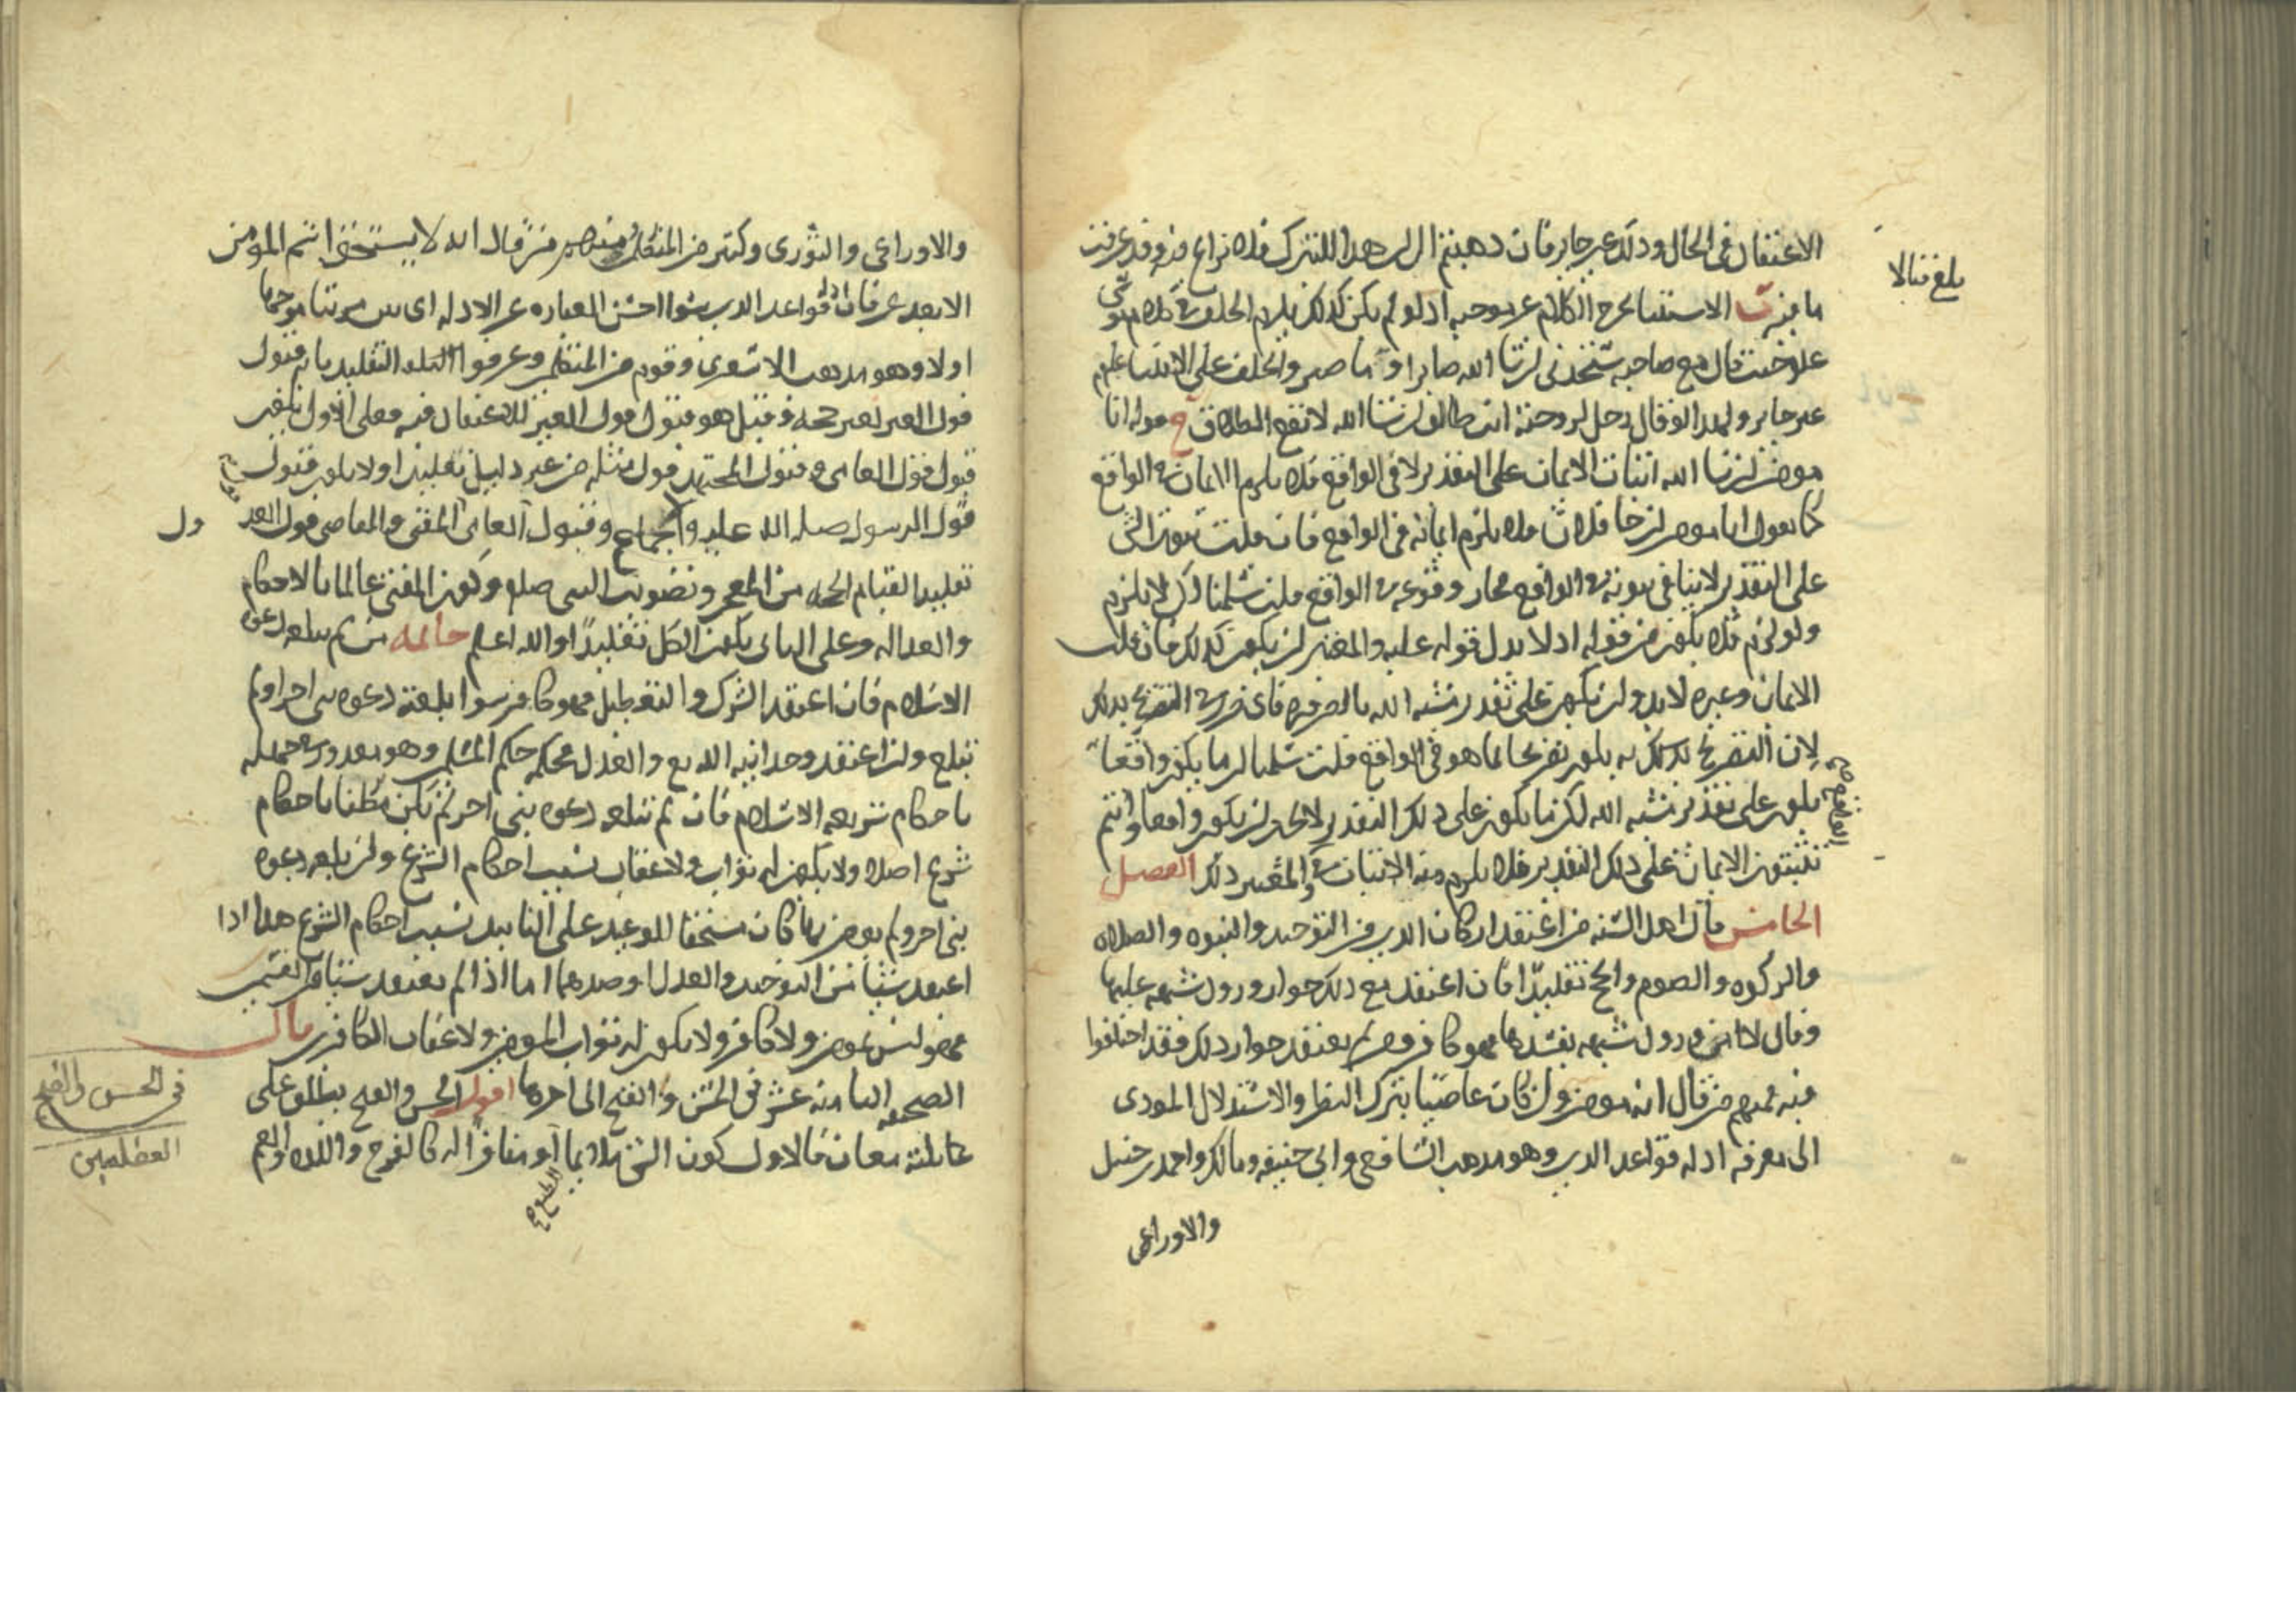 الاعتقاد فى الحال وذلك غير جايز فان ذهبتم الى ان هذا للتبرك فلا نزاع فيه وقد عرفت
بلغ قبالا
ما فيه ب الاستثنا يخرج الكلام عن موجبه اذ لو لم يكن كذلك يلزم الخلف فى كلام موسى
علم حيث قال مع صاحبه ستجدنى ان شا الله صابرا وما صبر والخلف على الانبيا علم
غير جايز ولهذا لو قال رجل لزوجته انت طالق ان شا الله لا تقع الطلاق ج قوله انا
مومن ان شا الله اثبات الايمان على التقدير لا فى الواقع فلا يلزم الايمان فى الواقع
كما يقول انا مومن ان جا فلان فلا يلزم ايمانه فى الواقع فان قلت ثبوت الشى
على التقدير لا ينافى ثبوته فى الواقع فجاز وقوعه فى الواقع قلت سلمنا لكن لا يلزم
ولو لزم فلا يكون من قوله اذ لا يدل قوله عليه والمفتى ان يكون كذلك فان قلت
الايمان وغيره لابد وان يكون على تقدير مشية الله بالضرورة فاى ضرر فى التصريح بذلك
لان التصريح بذلك يكون تصريحا لما هو فى الواقع قلت سلمنا ان ما يكون واقعا
يكون على تقدير مشية الله لكن ما يكون على ذلك التقدير لا يجب ان يكون واقعا وانتم
تثبتون الايمان على ذلك التقدير فلا يلزم منه الاثبات فى والمعتبر ذلك الفصل
الخامس قال اهل السنه من اعتقد اركان الدين من التوحيد والنبوه والصلاه
والزكوه والصوم والحج تقليدًا فان اعتقد مع ذلك جواز ورود شبهه عليها
وقال لا امن ورود شبهه يفسدها فهو كافر ومن لم يعتقد جواز ذلك فقد اختلفوا
فيه فمنهم من قال انه مومن وان كان عاصيًا بترك النظر والاستدلال المودى
الى معرفه ادله قواعد الدين وهو مذهب الشافعى وابى حنيفه ومالك واحمد بن حنبل
والاوزاعى
والاوزاعى والثورى وكثير من المتكلمين ومنهم من قال انه لا يستحق اسم المومن
الا بعد عرفان ادله قواعد الدين سوا احسن العباره عن الادله اى
اولا وهو مذهب الاشعرى وقوم من المتكلمين وعرفوا التقليد بانه قبول
قول الغير بغير حجه وقيل هو قبول قول الغير للاعتقاد فيه فعلى الاول يكون
قبول قول العامى وقبول المجتهد قول مثله من غير دليل تقليدا ولا يكون قبول
قول الرسول صلى الله عليه والاجماع وقبول العامى المفتى والقاضى قول العدول
تقليدا لقيام الحجه من المعجز وتصويب النبى صلع وكون المفتى عالما بالاحكام
والعداله وعلى الثانى يكون الكل تقليدًا والله اعلم خاتمه من لم يبلغه دعوه
الاسلام فان اعتقد الشرك والتعطيل فهو كافر سوا بلغته دعوه نبى اخر او لم
تبلغ وان اعتقد وحدانيه الله تع والعدل فحكمه حكم المسلمين وهو معذور فى جهله
باحكام شريعه الاسلام فان لم تبلغه دعوه نبى اخر لم يكن مكلفا باحكام
شرع اصلا ولا يكون له ثواب ولا عقاب بسبب احكام الشرع وان بلغه دعوه
نبى اخر ولم يومن بها كان مستحقا للوعيد على التابيد بسبب احكام الشرع هذا اذا
اعتقد شيئا من التوحيد والعدل او ضدهما اما اذا لم يعتقد شيئا من القسمين
فهو ليس بمومن ولا كافر ولا يكون له ثواب المومنين ولا عقاب الكافرين قال
الصحيفه الثامنه عشر فى الحسن والقبح الى اخرها اقول الحسن والقبح يطلق على
فى الحسن والقبح
العقليين
ثلثه معان فالاول كون الشى ملايما او منافرا له كالفرح واللذه والغم